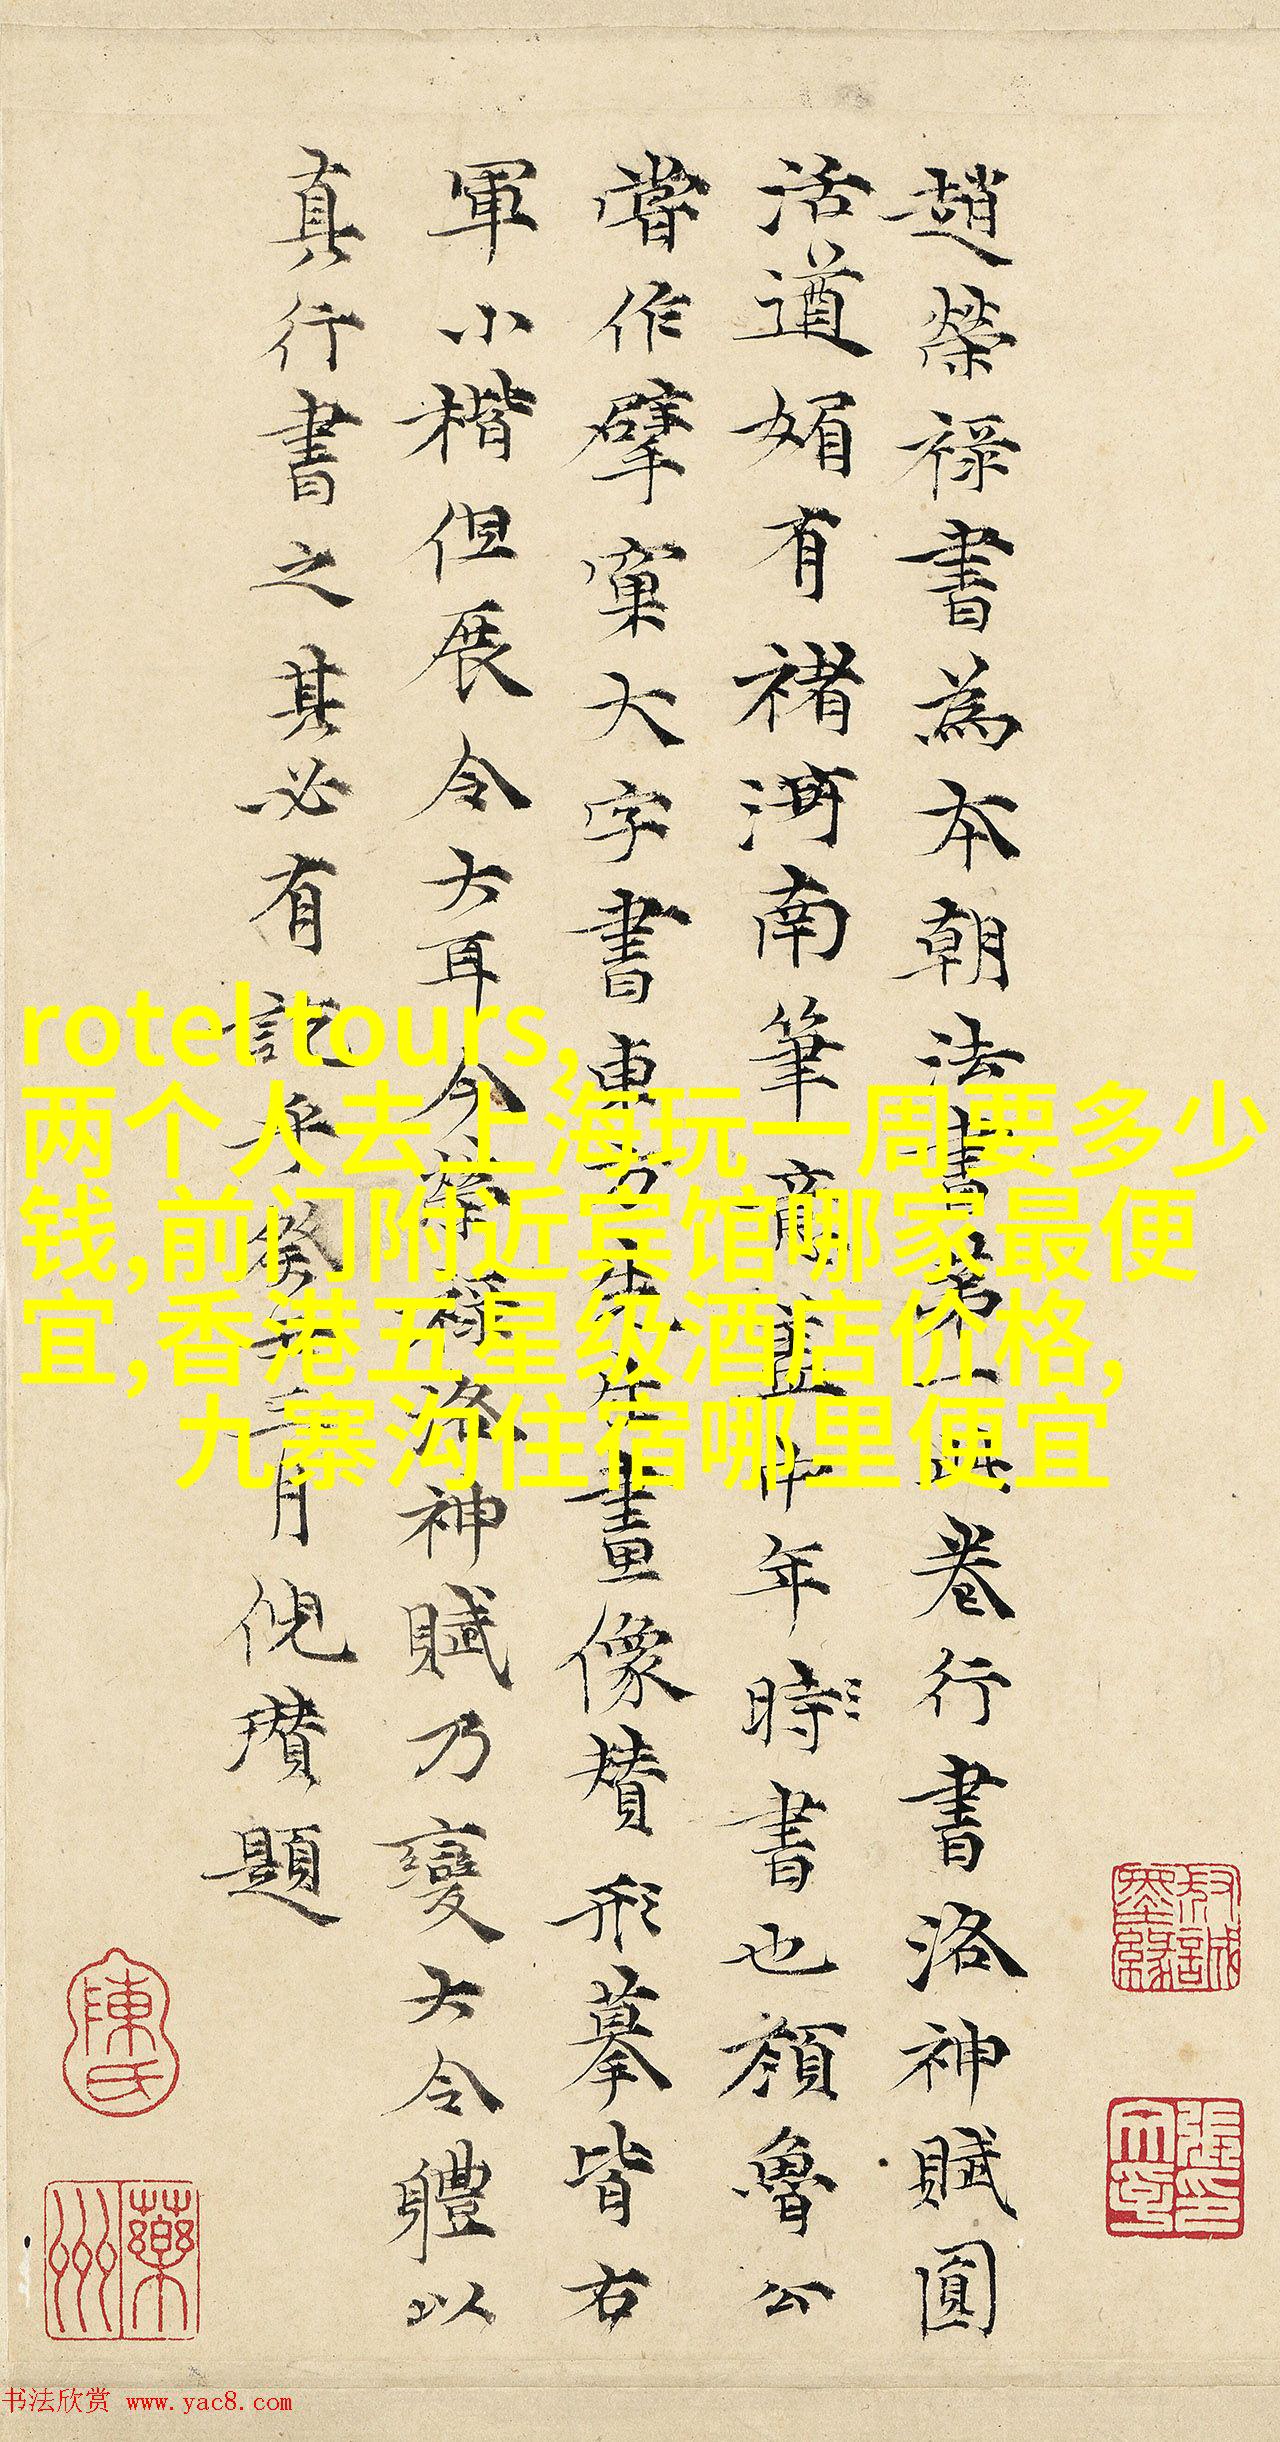 趙榮祿書為本朝法書第一此卷行書洛神賦圓
活遒媚有褚河南筆意盖中年時書也顏魯公
嘗作擘窠大字書東方先生畫像賛形摹皆右
軍小楷但展令大耳今榮祿洛神賦乃變大令體以
真行書之其必有說乎癸丑三月倪瓚題
rotel tours,
两个人去上海玩一周要多少
钱,前门附近宾馆哪家最便
宜,香港五星级酒店价格,
九寨沟住宿哪里便宜
陳氏
蘂州
书法欣赏 www.yac8.com